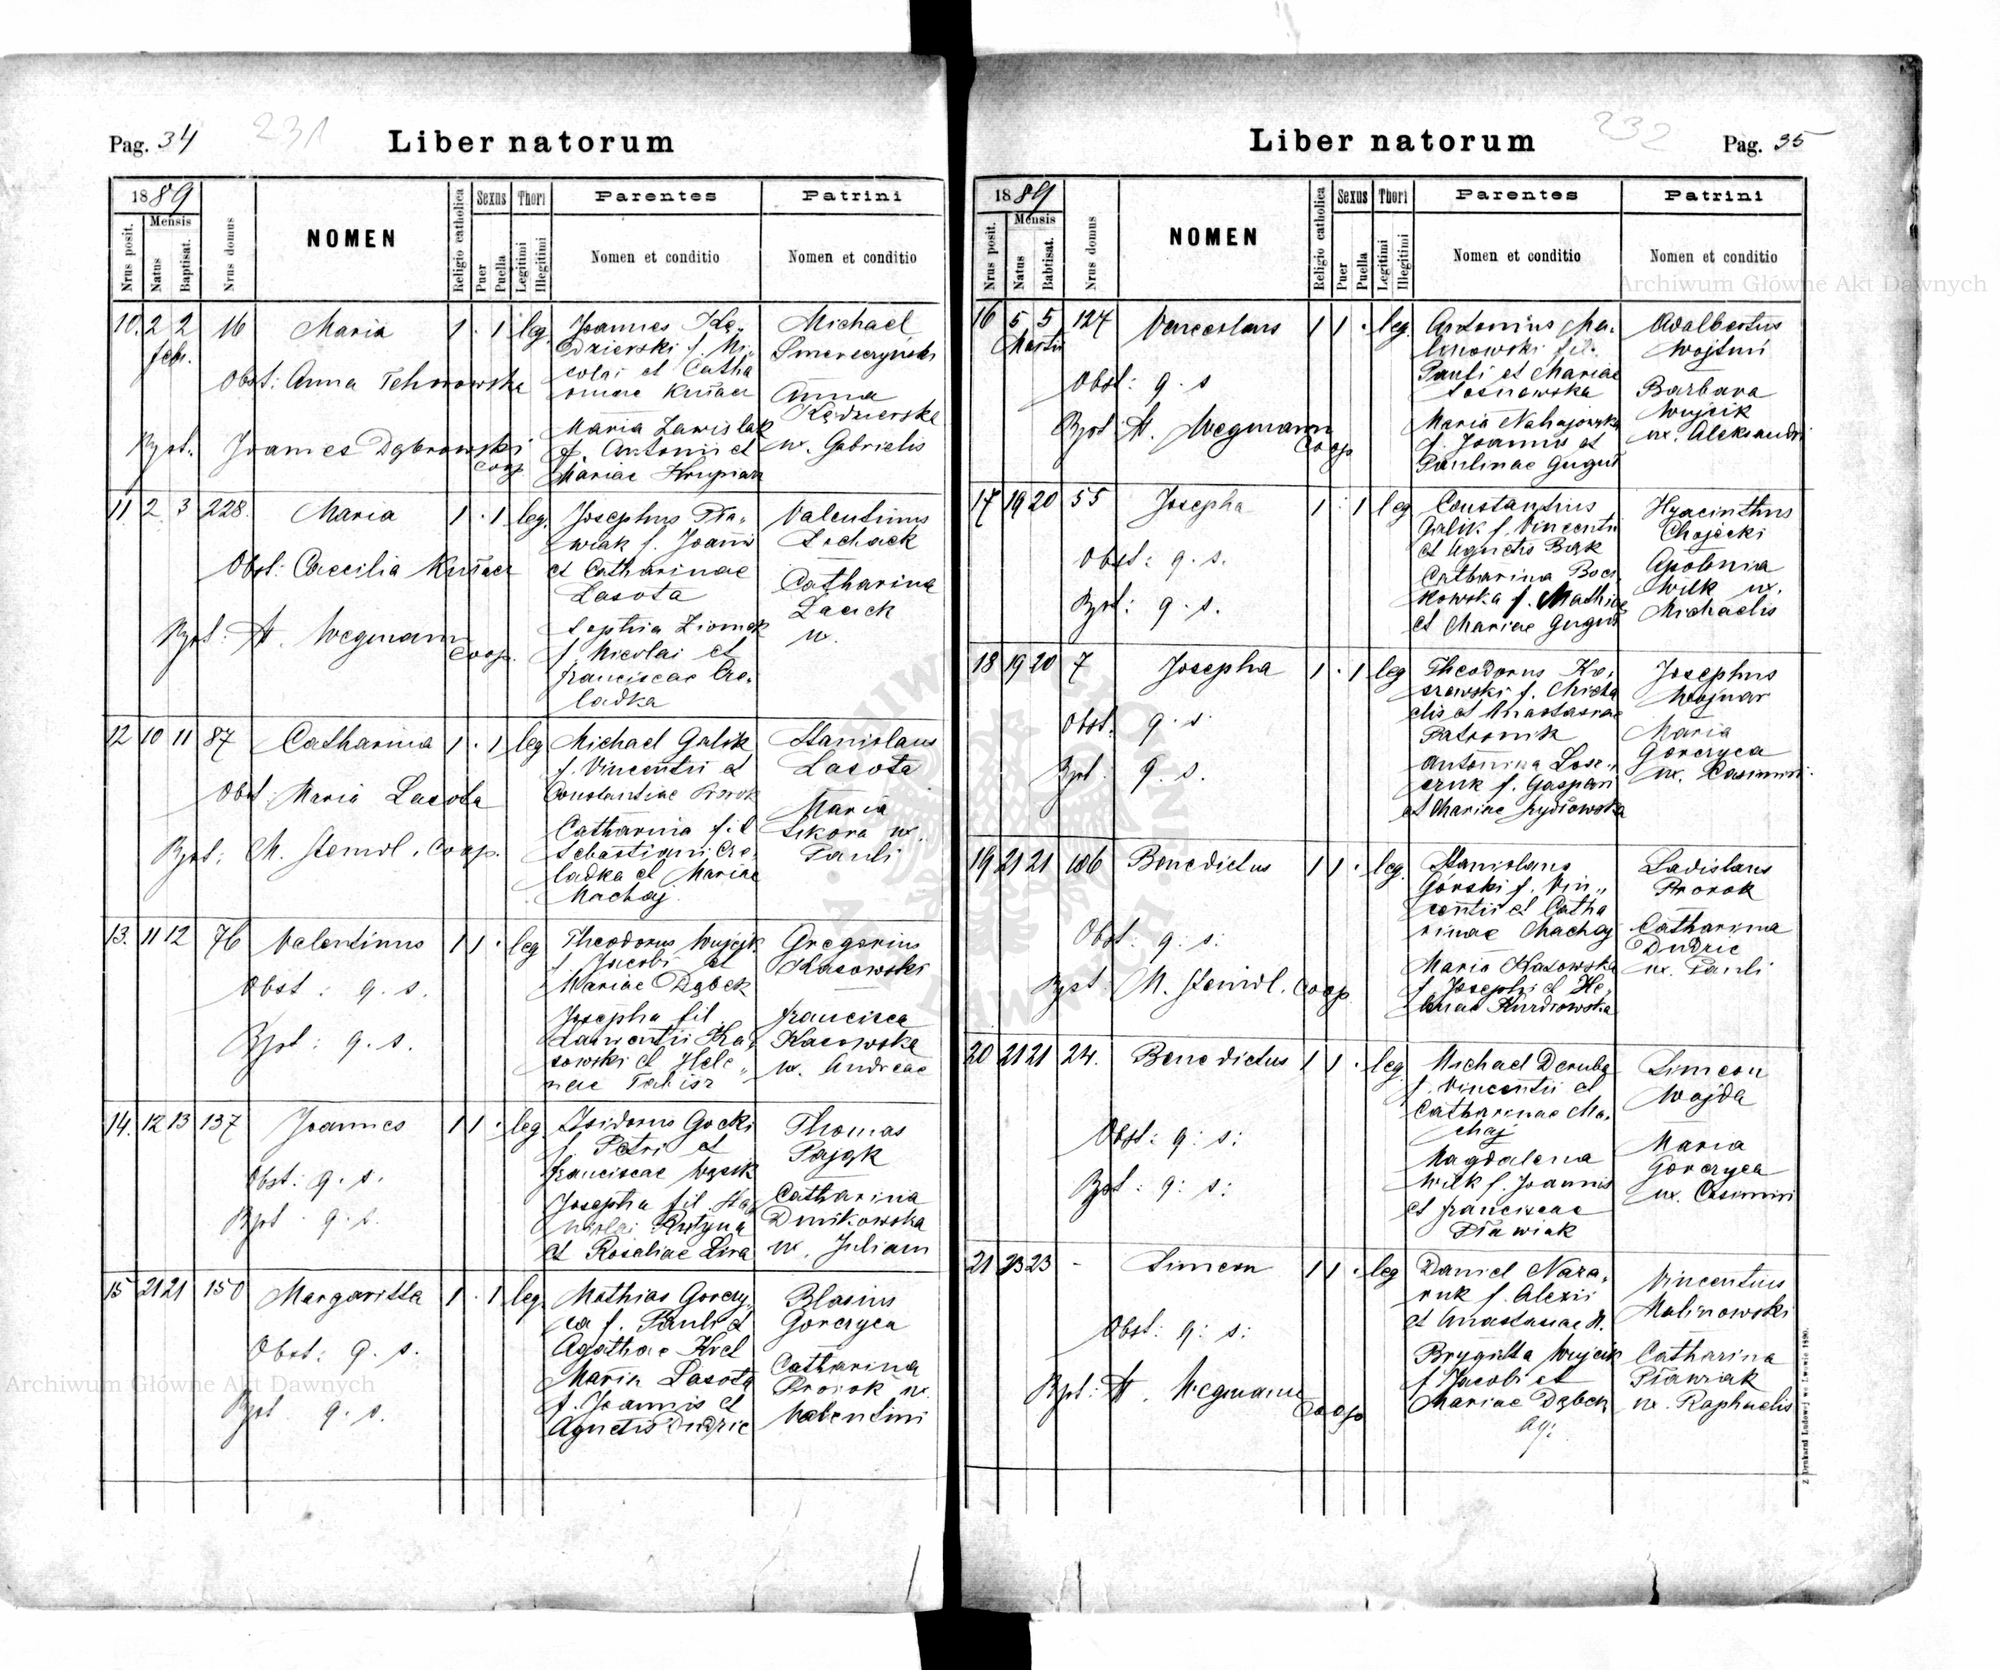 Pag. 34
231
Liber natorum
1889
Mensis
Nrus posit.
Natus
Baptisat.
Nrus domus
NOMEN
Religio catholica
Sexus
Puer
Puella
Thori
Legitimi
Illegitimi
Parentes
Nomen et conditio
Patrini
Nomen et conditio
10. 2 2 16 Maria 1 . 1 leg.
febr.
Obst: Anna
Bpt: Joannes Dąbrowski
coop
Joannes Kę-
dzierski f. Ni-
colai et Catha
rinae Kusiacz
Maria Zawiślak
f. Antonii et
Mariae
Michael
Anna
Kędzierska
ux. Gabrielis
11 2 3 228. Maria 1 . 1 leg.
Obst: Caecilia
Bpt: A. Wegmann
coop.
Josephus Pła-
wiak f. Joanni
et Catharinae
Lasota
Sophia Ziomek
f. Nicolai et
Franciscae Cze-
ladka
Valentinus
Sochacki
Catharina
ux.
12 10 11 87 Catharina 1 . 1 leg
Obst: Maria Lasota
Bpt: M. Steindl. Coop.
Michael Galik
f. Vincentii et
Constantiae Prorok
Catharina fil
Sebastiani Cze-
ladka et Mariae
Machaj
Stanislaus
Lasota
Maria
Sikora ux.
Pauli
13. 11 12 76 Valentinus 1 1 . leg
Obst: q. s.
Bpt: q. s.
Theodorus Wujcik
f. Jacobi et
Mariae Dąbek
Josepha fil.
Laurentii Ka-
sowski et Hele-
nae
Gregorius
Kasowski
Francisca
Kasowska
ux. Andreae
14. 12 13 137 Joannes 1 1 . leg
Obst: q. s.
Bpt: q. s.
Isidorus Gocki
f. Petri et
Franciscae Wąsik
Josepha fil. Sta-
nislai Rutyna
et Rosaliae Lira
Thomas
Pająk
Catharina
Dmikowska
ux. Juliani
15 21 21 150 Margaritta 1 . 1 leg.
Obst: q. s.
Bpt. q. s.
Mathias Gorczy-
ca f. Pauli et
Agathae Król
Maria Lasota
f. Joannis et
Agnetis Dudzic
Blasius
Gorczyca
Catharina
Prorok ux.
Valentini
232
Liber natorum
Pag. 35
1889
Mensis
Nrus posit.
Natus
Babtisat.
Nrus domus
NOMEN
Religio catholica
Sexus
Puer
Puella
Thori
Legitimi
Illegitimi
Parentes
Nomen et conditio
Patrini
Nomen et conditio
16 5 5 124 Venceslaus 1 1 . leg.
Martii
Obst: q. s
Bpt A. Wegmann
Coop
Antonius Ma-
linowski fil.
Pauli et Mariae
Sosnowska
Maria Nahajowska
f. Joannis et
Paulinae Guguł
Adalbertus
Barbara
Wujcik
ux. Aleksandri
17 19 20 55 Josepha 1 . 1 leg
Obst: q. s.
Bpt: q. s.
Constantius
Galik f. Vincentii
et Agnetis Bąk
Catharina Bocz-
kowska f. Mathiae
et Mariae Guguł
Hyacinthus
Chojecki
Apolonia
Wilk ux.
Michaelis
18 19 20 7 Josepha 1 . 1 leg
Obst. q. s.
Bpt. q. s.
Theodorus Ko-
szowski f. Micha
elis et Anastasiae
Antonina
f. Gaspari
et Mariae
Josephus
Wojnar
Maria
Gorczyca
ux. Casimiri.
19 21 21 106 Benedictus 1 1 . leg.
Obst: q. s.
Bpt M. Steindl. Coop
Stanislaus
Górski f. Vin-
centii et Catha
rinae Machaj
Maria Kasowska
f. Josephi et He-
lenae
Ladislaus
Prorok
Catharina
Dudzic
ux. Pauli
20 21 21 24. Benedictus 1 1 . leg.
Obst: q: s:
Bpt: q: s:
Michael Deruba
f. Vincentii et
Catharinae Ma-
chaj
Magdalena
Wilk f. Joannis
et Franciscae
Pławiak
Simeon
Wojda
Maria
Gorczyca
ux. Casimiri
21 23 23 - Simeon 1 1 . leg
Obst: q: s:
Bpt: A. Wegmann
Coop
Daniel Naza-
ruk f. Alexii
et Anastasiae N.
Brygitta Wujcik
f. Jacobi et
Mariae Dąbek
agr.
Vincentius
Malinowski
Catharina
Pławiak
ux. Raphaelis
Z Drukarni Ludowej we Lwowie 1890.
Archiwum Główne Akt Dawnych
Archiwum Główne Akt Dawnych